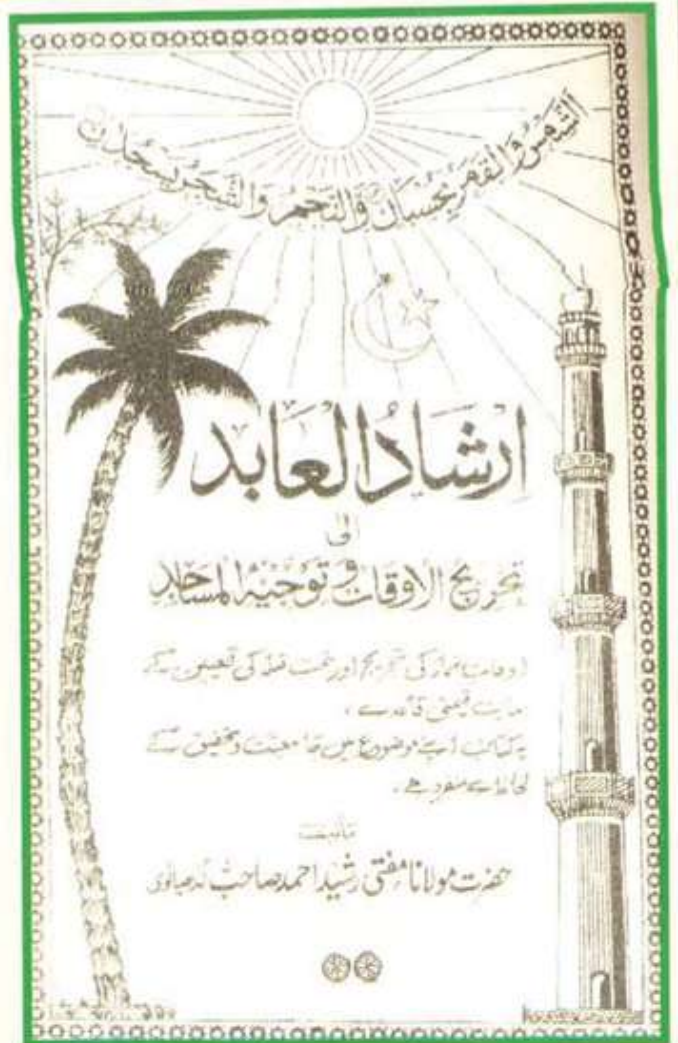 الشَّمْسُ وَالْقَمَرُ بِحُسْبَانٍ وَالنَّجْمُ وَالشَّجَرُ يَسْجُدَانِ
اِرْشَادُ الْعَابِد
الیٰ
تخریج الاوقات و توجیہ المساجد
اوقات نماز کی تخریج اور سمت قبلہ کی تعیین کے
نہایت قیمتی قاعدے،
یہ کتاب اپنے موضوع میں جامعیت و تحقیق کے
لحاظ سے منفرد ہے۔
تالیف
حضرت مولانا مفتی رشید احمد صاحب لدھیانوی